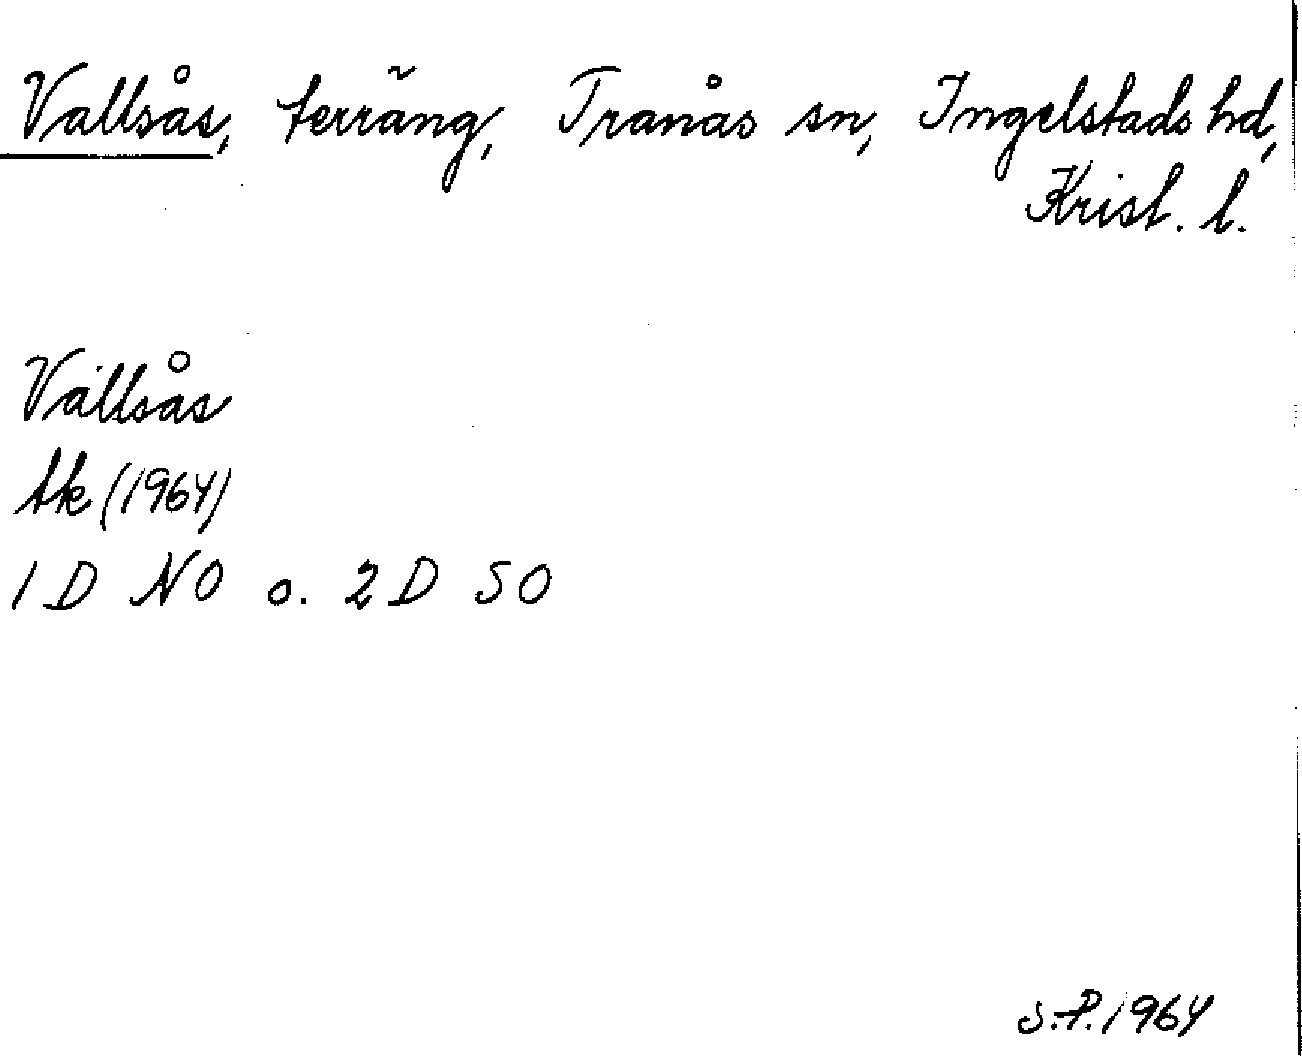 Vallsås, terräng, Tranås sn, Ingelstads hd,
Krist. l.
Vallsås
Ak (1964)
1D NO o. 2D SO
S.P. 1964